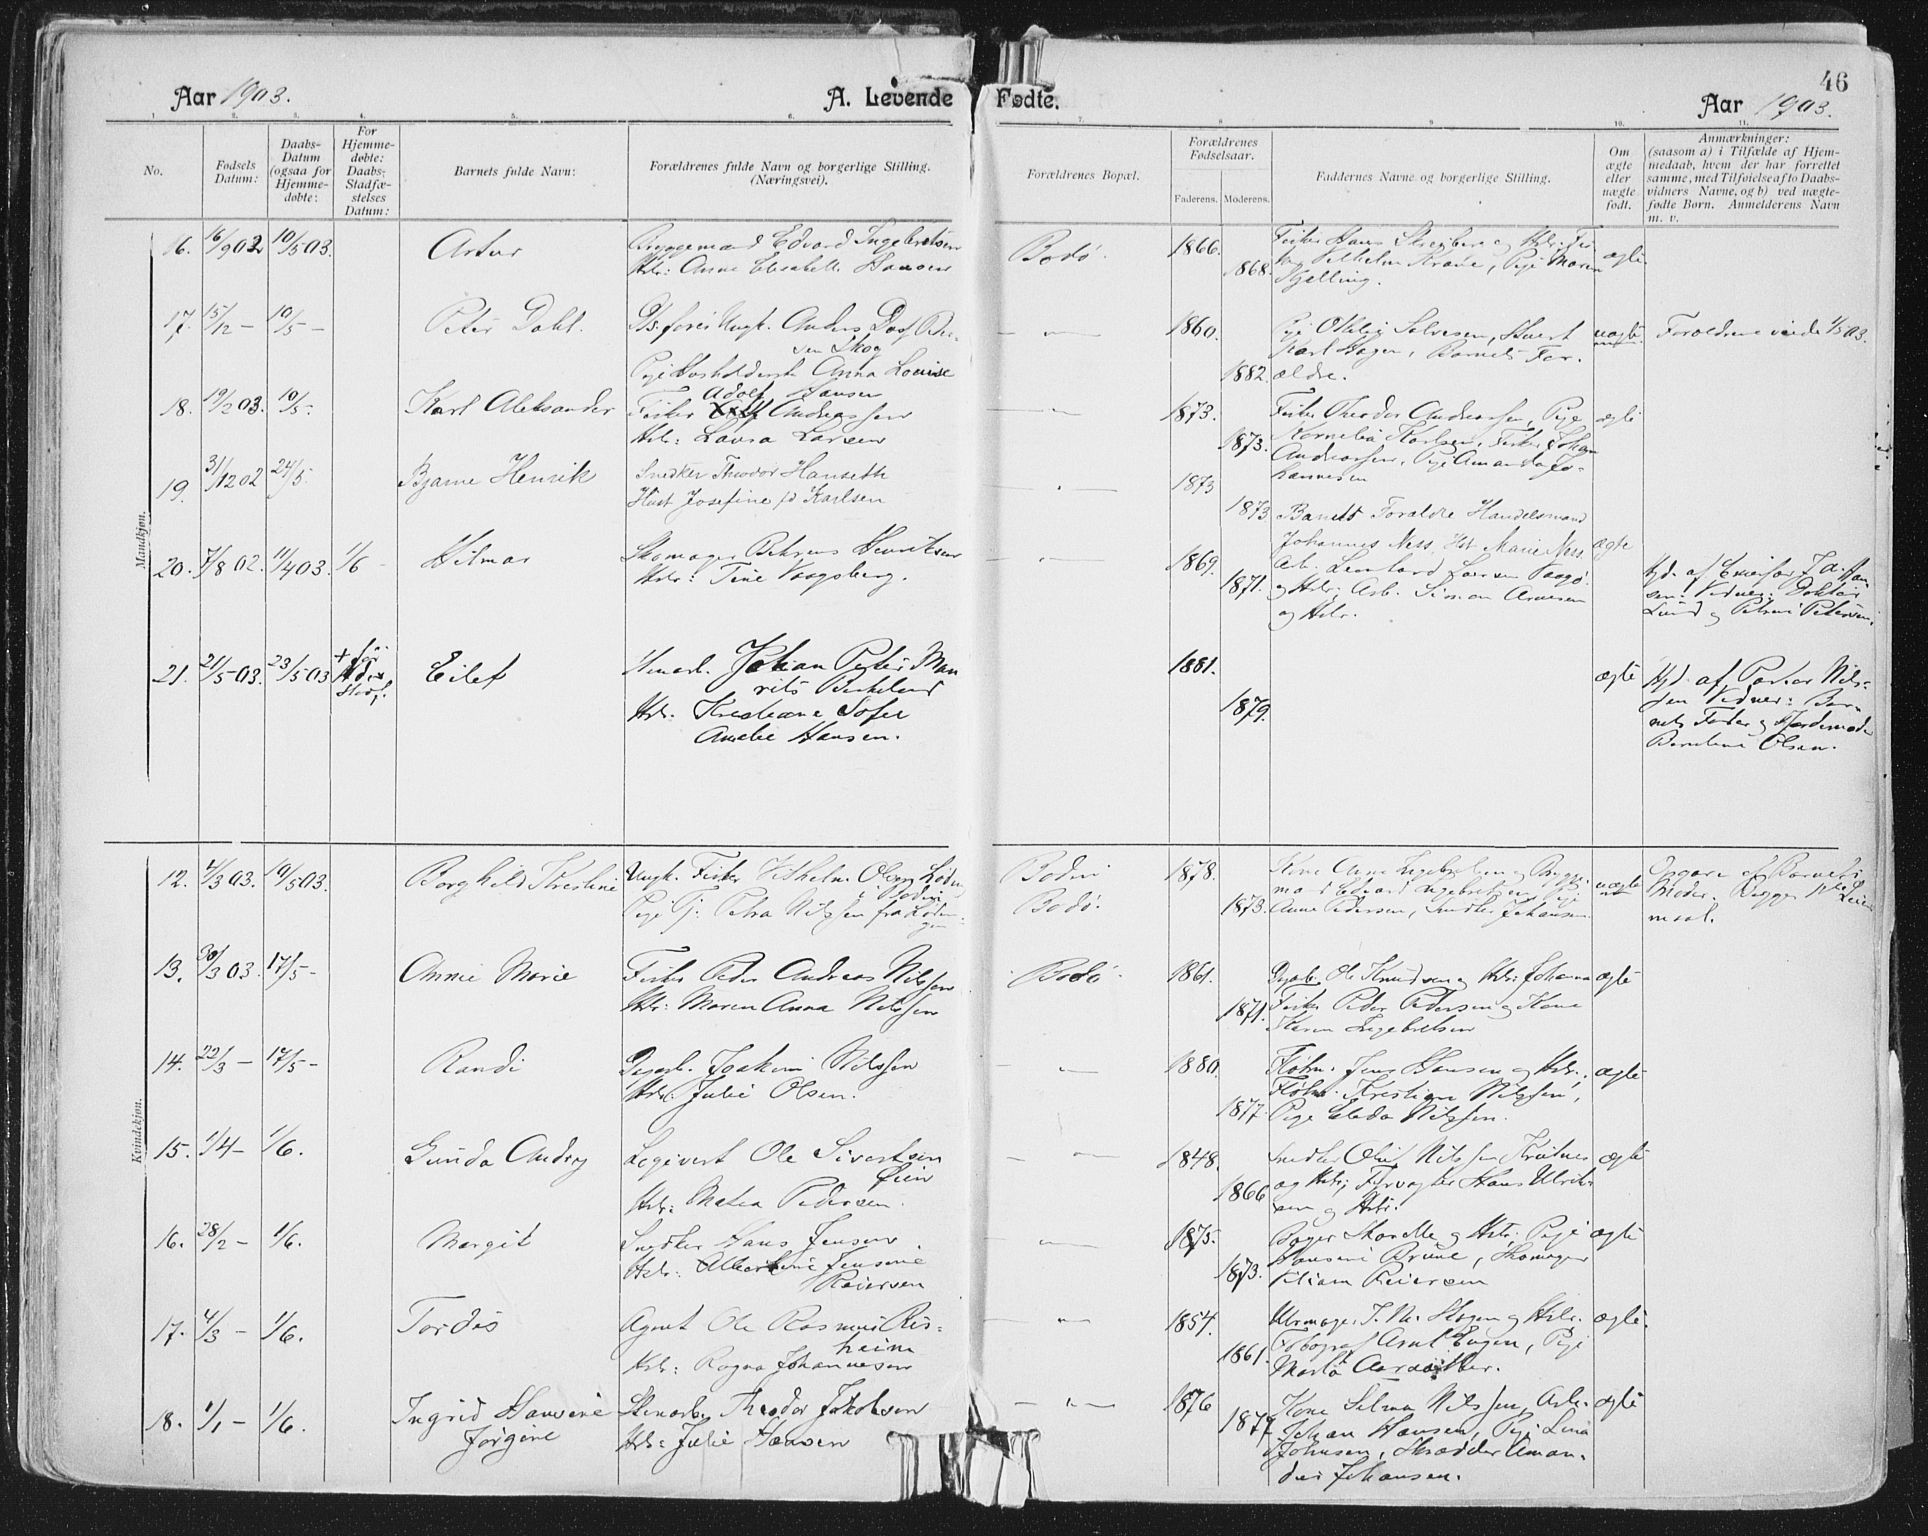 46
Aar 1903.
A. Levende
Fødte.
Aar 1903.
1. 2. 3. 4. 5. 6. 7. 8 9. 10. 11.
No.
Fødsels Datum:
Daabs-
Datum
(ogsaa for
Hjemme-
døbte:
For
Hjemme-
døbte:
Daabs-
Stadfæ-
stelses
Datum:
Barnets fulde Navn:
Forældrenes fulde Navn og borgerlige Stilling.
(Næringsvei).
Forældrenes Bopæl.
Forældrenes
Fødselsaar.
Faderens. Moderens.
Faddernes Navne og borgerlige Stilling.
Om
ægte
eller
uægte
født.
Anmærkninger:
(saasom a) i Tilfælde af Hjem-
medaab, hvem der har forrettet
samme, med Tilføielse af to Daabs-
vidners Navne, og b) ved uægte-
fødte Børn. Anmelderens Navn
m. v.
Mandkjøn.
16. 16/9 02 10/5 03. Artur
Bryggemand Edvard Ingebretsen
Hstr: Anna Elisabeth Hansen
Bodø. 1866. 1868.
Kjelling.
ægte
17. 15/12 — 10/5 — Peter Dahl.
Pige Anna Louise
Hansen
1860. 1882.
Pige Othlig Selvesen,
Karl Hagen, Barnets For-
ældre.
uægte
Forældrene viede 1/5 03.
18. 19/2 03. 10/5. Karl Aleksander
Fisker Adolf Andreassen
Hstr: Laura Larsen
1873. 1873.
Fisker Theodor Andreassen, Pige
Kornelia Karlsen, Fisker Johan
Andreassen, Pige Amanda Jo-
hannesen
ægte
19. 31/12 02 24/5. Bjarne Henrik
Snedker Theodor Hanseth
Hust Josefine f/d Karlsen
1873 1873
Barnets Forældre Handelsmand
Johannes Ness, Hst Marie Ness
ægte
20. 7/8 02. 11/4 03. 1/6 Hilmar
Skomager Behrens Henriksen
Hstr: Tine Vaagsberg.
1869. 1871.
Arb. Leonhard Larsen Vaagø
og Hstr, Arb. Simon Arnesen
og Hstr.
Hjd. af
sen. Vidner: Doktor
Lund og Petrine Petersen.
21. 21/5 03. 23/5 03 + før
Stadf. Eilef
Johan Peter Mau
rits Birkeland
Hstr. Kristiane Sofie
Amalie Hansen.
1881. 1879.
ægte
Hjd. af Pastor Nils-
sen Vidner: Bar-
nets Fader og Jordemoder
Berntine Olsen.
Kvindekjøn.
12. 4/3 03. 10/5 03. Borghild Kristine
Ungk. Fisker Vilhelm Olsen
i Bodin
Pige Petra Nilssen fra Løding-
en
Bodin
Bodø.
1878. 1873.
Kone Anna Ingebretsen og Brygge-
mand Edvard Ingebretsen, Pige
Anne Pedersen, Snedker Johansen
uægte
Opgave af Barnets
Moder. Begges 1ste Leier
maal.
13. 30/3 03. 17/5 — Annie Marie
Fisker Peder Andreas Nilssen
Hstr: Maren Anna Nilssen
Bodø. 1861. 1871.
Ole Knudsen og Hstr; Johanna
Fisker Peder Pedersen og Kone
Karen Ingebretsen
ægte
14. 22/3 — 17/5 — Randi
Joakim Nilssen
Hstr. Julie Olsen.
1880. 1877.
Jens Hansen og Hstr.,
Kristian Nilssen,
Pige Elida Nilssen.
ægte
15. 1/4 — 1/6. Gunda Audrey
Logivert Ole Sivertsen
Øien
Hstr: Matea Pedersen.
1848. 1866
Snedker Oluf Nilssen
og Hstr; Fyrvogter Hans Ulrik-
sen og Hstr.
ægte
16. 28/2 — 1/6. Margit
Snedker Hans Jensen
Hstr: Albertine Jensine
Reiersen
1875. 1873.
Bager og Hstr. Pige
Hansine Brune, Skomager
Viliam Reiersen
ægte
17. 4/3 — 1/6. Tordis
Agent Ole Rasmus Ris-
heim
Hstr: Ragna Johannesen
1854. 1861.
Urmager J. N. Skogen og Hstr.
Fotograf Arnt Engen, Pige
Marta
ægte.
18. 1/1 — 1/6. Ingrid Hansine
Jørgine
Stenarb. Theodor Jakobsen
Hstr: Julie Hansen
1876 1877
Kone Selma Nilssen, Arb.
Johan Hansen, Pige Lina
Johnsen, Skrædder Aman-
dus Johansen.
ægte